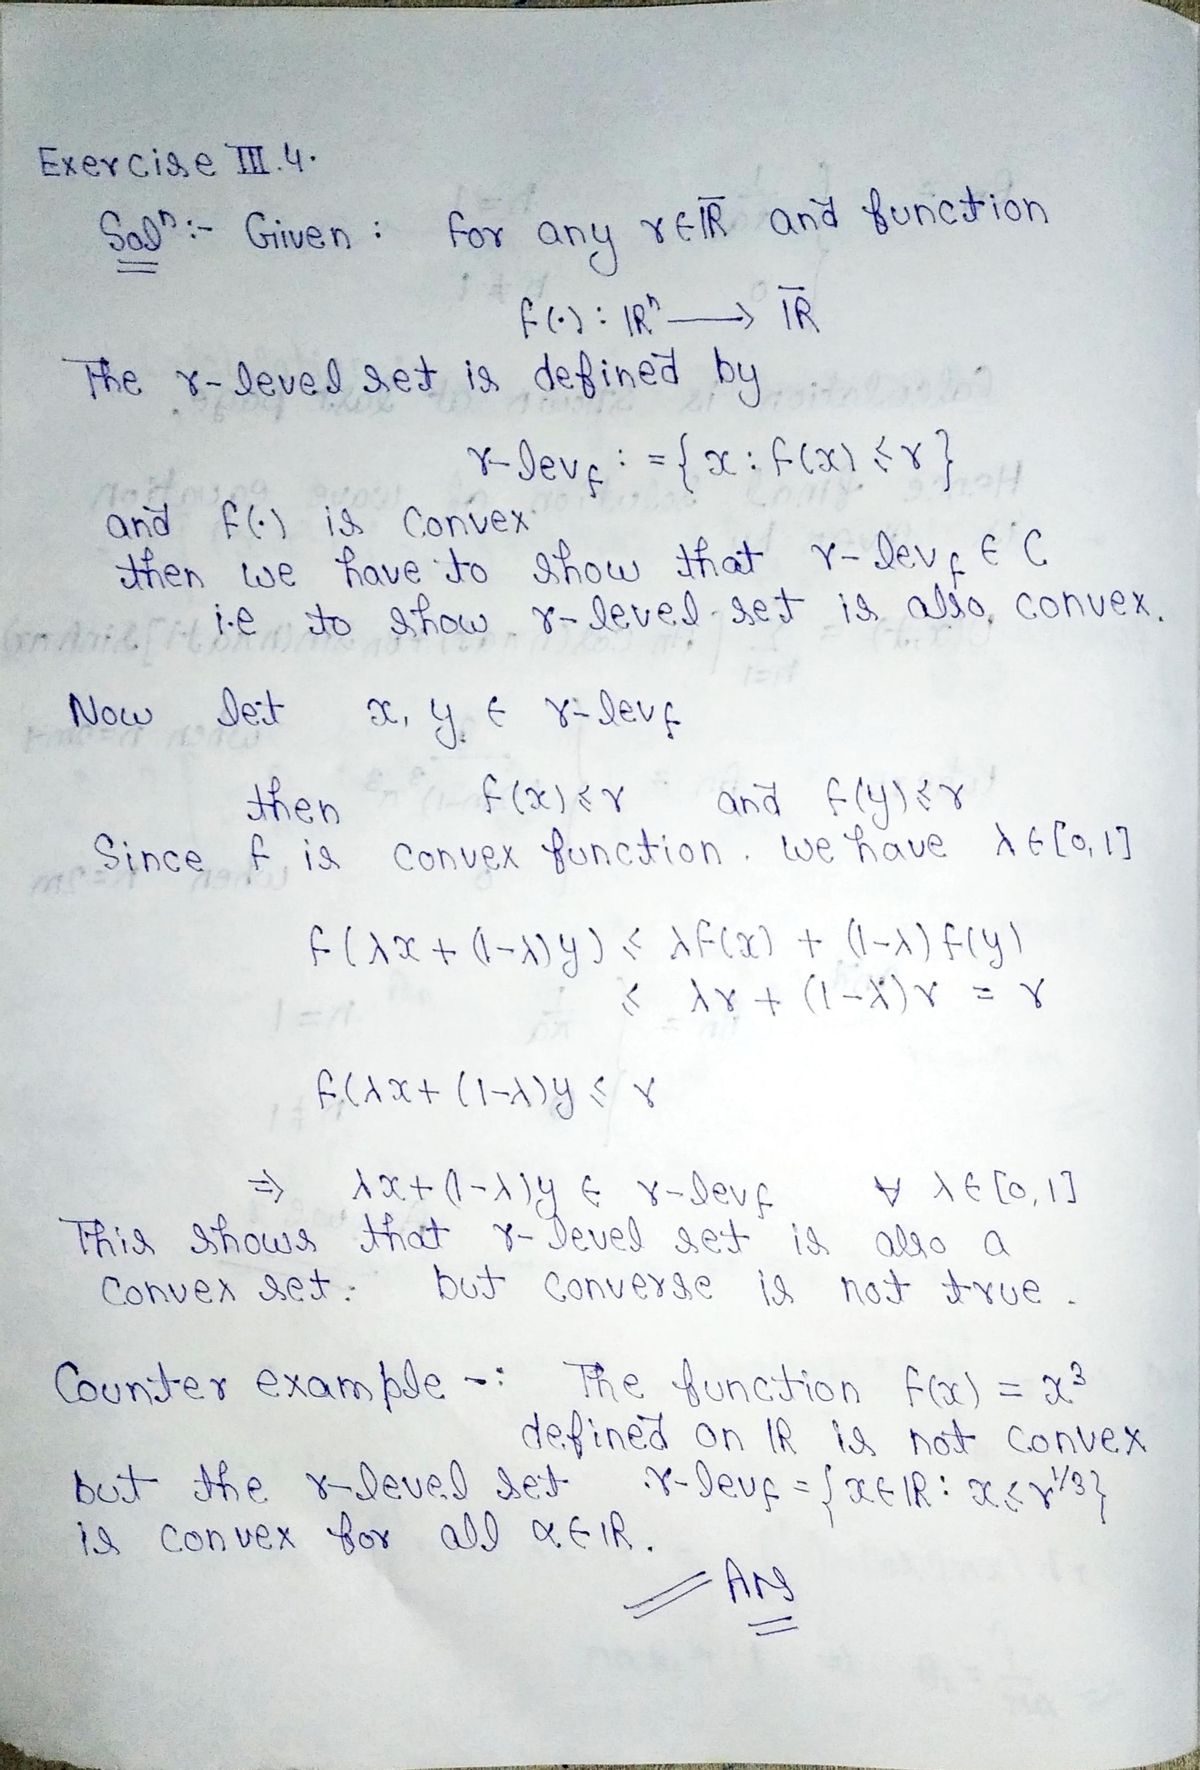 Exercise III.4.
Solⁿ:- Giiven : for any r∈IR̅ and function
f(·) : IRⁿ ⟶ IR̅
The r-level set is defined by
r-lev_f : = {x : f(x) ≤ r}
and f(·) is convex
then we have to show that r-lev_f ∈ C
i.e to show r-level set is also convex.
Now let x, y ∈ r-lev_f
then f(x) ≤ r and f(y) ≤ r
Since f is convex function. we have λ∈[0,1]
f(λx + (1-λ)y) ≤ λf(x) + (1-λ) f(y)
≤ λr + (1-λ)r = r
f(λx + (1-λ)y ≤ r
⇒ λx + (1-λ)y ∈ r-lev_f ∀ λ∈[0,1]
This shows that r-level set is also a
convex set. but converse is not true.
Counter example -: The function f(x) = x³
defined on IR is not convex
but the r-level set r-lev_f = {x∈IR : x ≤ r^{1/3}}
is convex for all α∈IR.
Ans